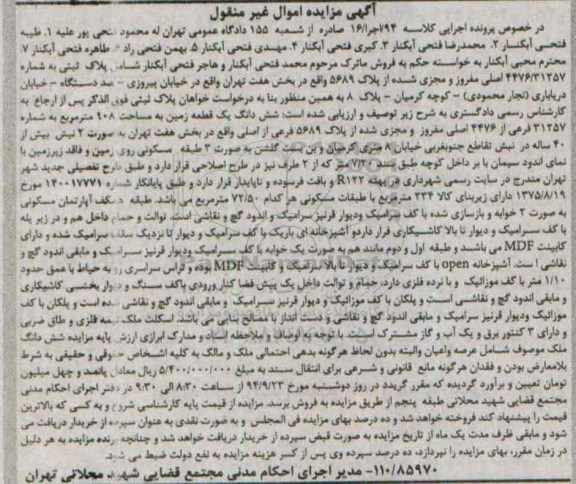 آگهی مزایده اموال غیر منقول
در خصوص پرونده اجرایی کلاسه ۹۴/اجرا/۱۶ صادره از شعبه ۱۵۵ دادگاه عمومی تهران له محمود فتحی پور علیه ۱. طیبه
فتحی آبکنار ۲. محمدرضا فتحی آبکنار ۳. کبری فتحی آبکنار ۴. مهدی فتحی آبکنار ۵. بهمن فتحی راد ۶. طاهره فتحی آبکنار ۷.
محترم محبی آبکنار به خواسته حکم به فروش ماترک مرحوم محمد فتحی آبکنار و هاجر فتحی آبکنار شامل پلاک ثبتی به شماره
۴۴۷۶/۳۱۲۵۷ اصلی مفروز و مجزی شده از پلاک ۵۶۸۹ واقع در بخش هفت تهران واقع در خیابان پیروزی – صد دستگاه – خیابان
دریاباری (نجار محمودی) – کوچه کرمیان – پلاک ۸ به همین منظور بنا به درخواست خواهان پلاک ثبتی فوق الذکر پس از ارجاع به
کارشناس رسمی دادگستری به شرح زیر توصیف و ارزیابی شده است: شش دانگ یک قطعه زمین به مساحت ۹۰۸ مترمربع به شماره
۳۱۲۵۷ فرعی از ۴۴۷۶ اصلی مفروز و مجزی شده از پلاک ۵۶۸۹ فرعی از اصلی واقع در بخش هفت تهران به صورت ۲ نبش بیش از
۴۰ ساله در نبش تقاطع جنوبغربی خیابان ۸ متری کرمیان و بن بست گلشن به صورت ۳ طبقه مسکونی روی زمین و فاقد زیرزمین با
نمای اندود سیمان با بر داخل کوچه طبق سند ۷/۲۰ متر که از ۲ طرف نیز در طرح اصلاحی قرار دارد و طبق طرح تفصیلی جدید شهر
تهران مندرج در سایت رسمی شهرداری در پهنه R۱۲۲ و بافت فرسوده و ناپایدار قرار دارد و طبق پایانکار شماره ۱۴۰۰۱۷۷۷۱ مورخ
۱۳۷۵/۸/۱۹ دارای زیربنای کالا ۲۳۴ مترمربع با طبقات مسکونی هر کدام ۷۲/۵۰ مترمربع می باشد. طبقه همکف آپارتمان مسکونی
به صورت ۲ خوابه و بازسازی شده با کف سرامیک ودیوار قرنیز سرامیک و اندود گچ و نقاشی است. توالت و حمام داخل هم و در زیر پله
با کف سرامیک و دیوار تا بالا کاشیکاری قرار دارد و آشپزخانه ای باریک با کف سرامیک و دیوار تا نزدیک سقف سرامیک شده و دارای
کابینت MDF می باشد و طبقه اول و دوم مانند هم به صورت یک خوابه با کف سرامیک ودیوار قرنیز سرامیک و مابقی اندود گچ و
نقاشی است. آشپزخانه open با کف سرامیک و دیوار تا بالا سرامیک و کابینت MDF بوده و تراس سراسری رو به حیاط با عمق حدود
۱/۱۰ متر با کف موزائیک و با نرده فلزی دارد، حمام و توالت داخل یک پیش فضا کنار ورودی باکف سنگ و دیوار بخشی کاشیکاری
و مابقی اندود گچ و نقاشی است و پلکان با کف موزائیک و دیوار قرنیز سرامیک و مابقی اندود گچ و نقاشی شده است و پلکان با کف
موزائیک ودیوار قرنیز سرامیک و مابقی اندود گچ و نقاشی و دست انداز با مصالح بنایی می باشد. اسکلت ملک نیمه فلزی و طاق ضربی
و دارای ۳ کنتور برق و یک آب و گاز مشترک است. با توجه به اوصاف و ملاحظه اسناد و مدارک ابرازی ارزش پایه مزایده شش دانگ
ملک موصوف شامل عرصه واعیان والبته بدون لحاظ هرگونه بدهی احتمالی ملک و مالک به کلیه اشخاص حقوقی و حقیقی به شرط
بلامعارض بودن و فقدان هرگونه مانع قانونی و شرعی برای انتقال سند به مبلغ ۵/۴۰۰/۰۰۰/۰۰۰ ریال معادل پانصد و چهل میلیون
تومان تعیین و برآورد گردیده که مقرر گردید در روز دوشنبه مورخ ۹۴/۹/۲۳ از ساعت ۸:۳۰ الی ۹:۳۰ در دفتر اجرای احکام مدنی
مجتمع قضایی شهید محلاتی طبقه پنجم از طریق مزایده به فروش برسد. مزایده از قیمت پایه کارشناسی شروع و به کسی که بالاترین
قیمت را پیشنهاد کند فروخته خواهد شد و ده درصد بهای مزایده فی المجلس و به صورت نقدی به عنوان سپرده از خریدار دریافت می
شود و مابقی ظرف مدت یک ماه از تاریخ مزایده به صورت قبض سپرده از خریدار دریافت خواهد شد و چنانچه برنده مزایده به هر دلیل
در زمان مقرر، بهای مزایده را نپردازد، ده درصد سپرده وی پس از کسر هزینه مزایده به نفع دولت ضبط می شود.
۱۱۰/۸۵۹۷۰– مدیر اجرای احکام مدنی مجتمع قضایی شهید محلاتی تهران